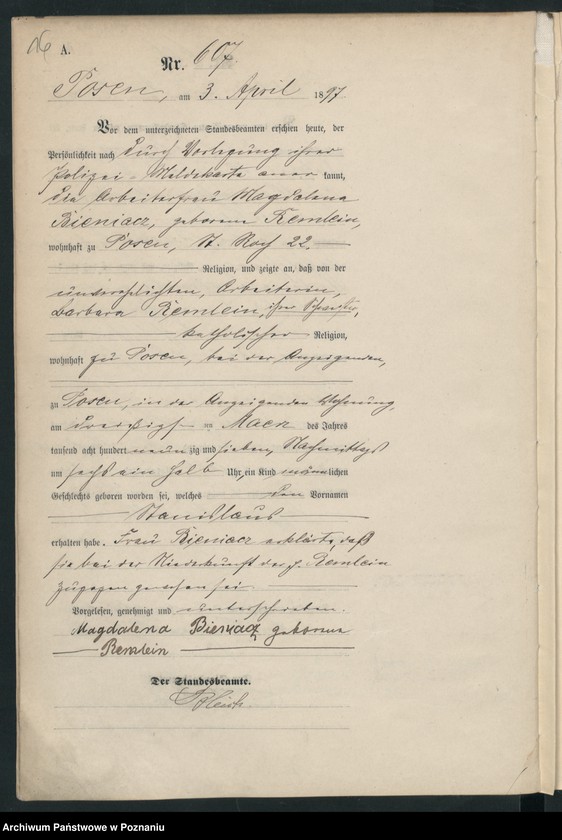 16
A.
Nr. 607
Posen, am 3. April 1897
Vor dem unterzeichneten Standesbeamten erschien heute, der
Persönlichkeit nach durch Vorlegung ihrer
Polizei-Meldekarte aner kannt,
die Arbeiterfrau Magdalena
Bieniacz, geborene Remlein,
wohnhaft zu Posen, St. Roch 22.
Religion, und zeigte an, daß von der
unverehelichten, Arbeiterin,
Barbara Remlein, ihrer Schwester,
katholischer Religion,
wohnhaft zu Posen, bei der Anzeigenden,
zu Posen, in der Anzeigenden Wohnung,
am dreißigsten März des Jahres
tausend acht hundert neun zig und sieben, Nachmittags
um sechs ein halb Uhr, ein Kind männlichen
Geschlechts geboren worden sei, welches den Vornamen
Stanislaus
erhalten habe. Frau Bieniacz erklärte, daß
sie bei der Niederkunft der p. Remlein
zugegen gewesen sei.
Vorgelesen, genehmigt und unterschrieben.
Magdalena Bieniacz geborene
Remlein
Der Standesbeamte.
Archiwum Państwowe w Poznaniu